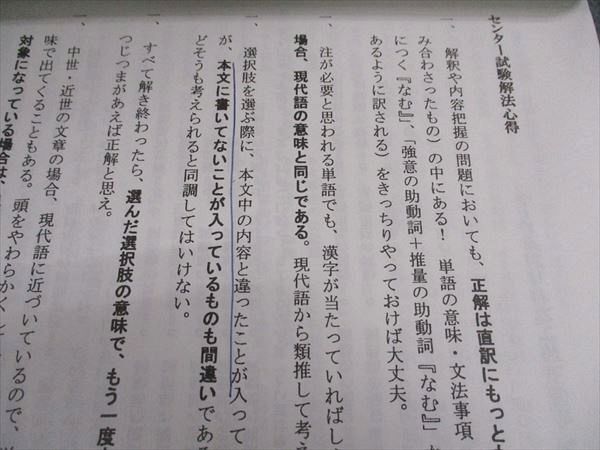 センター試験解法心得
一、解釈や内容把握の問題においても、正解は直訳にもっと
み合わさったもの）の中にある！　単語の意味・文法事項
につく『なむ』、「強意の助動詞＋推量の助動詞『なむ』」
あるように訳される）をきっちりやっておけば大丈夫。
一、注が必要と思われる単語でも、漢字が当たっていればし
場合、現代語の意味と同じである。現代語から類推して考え
一、選択肢を選ぶ際に、本文中の内容と違ったことが入って
が、本文に書いてないことが入っているものも間違いであ
どそうも考えられると同調してはいけない。
一、すべて解き終わったら、選んだ選択肢の意味で、もう一度
つじつまがあえば正解と思え。
一、中世・近世の文章の場合、現代語に近づいているので、
味で出てくることもある。頭をやわらかくし
対象になっている場合は、